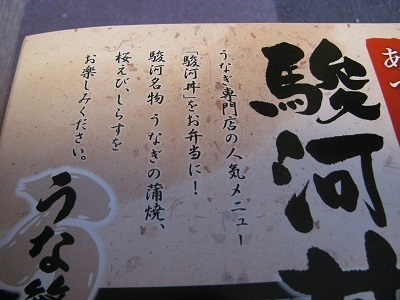 あつ
駿河丼
うなぎ専門店の人気メニュー
「駿河丼」をお弁当に！
駿河名物うなぎの蒲焼、
桜えび、しらすを
お楽しみください。
うな